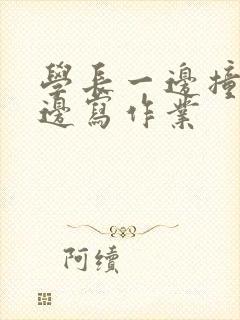 學長一邊撞
邊寫作業
阿續